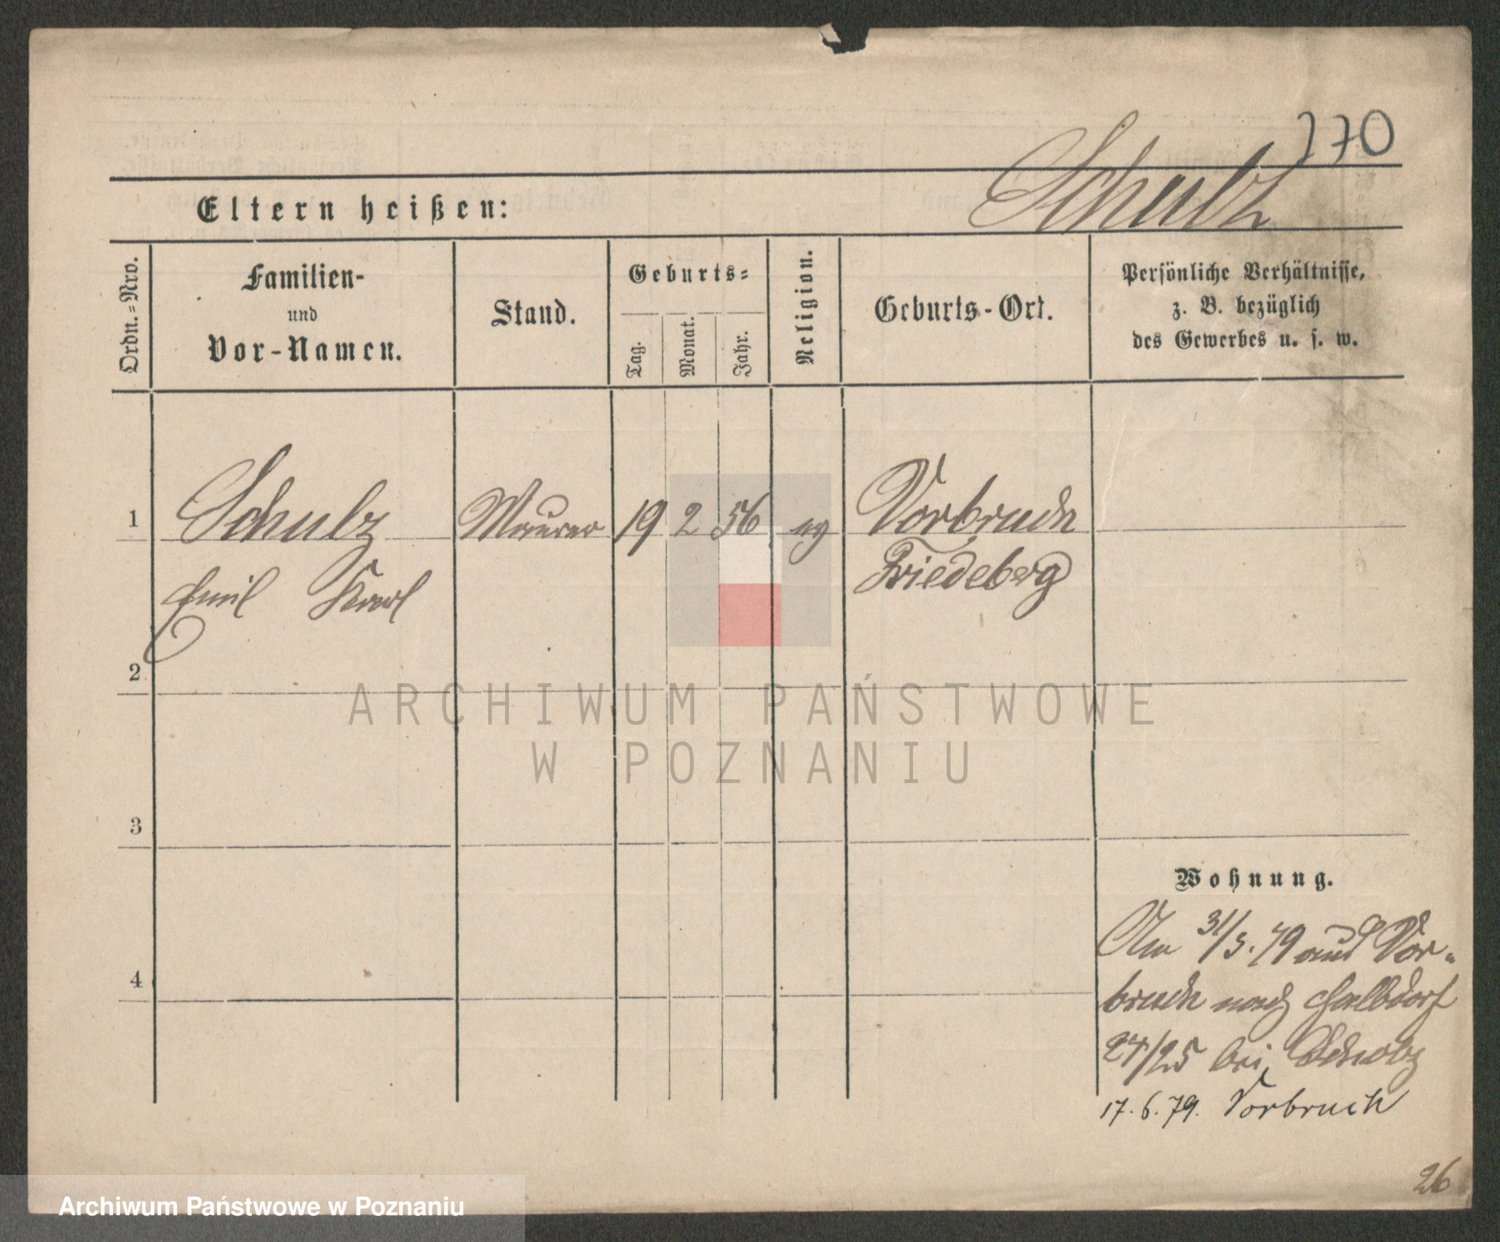 770
Schulz
Eltern heißen:
Ordn.-Nro.
Familien-
und
Vor-Namen.
Stand.
Geburts-
Tag.
Monat.
Jahr.
Religion.
Geburts-Ort.
Persönliche Verhältnisse,
z. B. bezüglich
des Gewerbes u. s. w.
1 Schulz Maurer 19 2 56 ev Vorbruch
Emil Karl Friedeberg
2
3
4
Wohnung.
Am 31/3.79 aus Vor-
bruch nach Halbdorf
24/25 bei
17.6.79. Vorbruch
26
ARCHIWUM PAŃSTWOWE
W POZNANIU
Archiwum Państwowe w Poznaniu